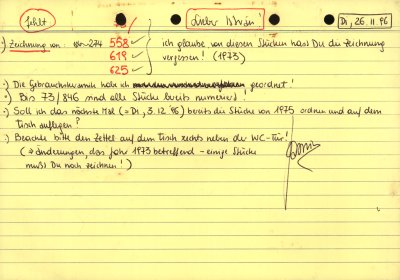 fehlt
Lieber
Di, 26. 11. 96
·) Zeichnung von: 558 ✓
619 ✓
625 ✓
ich glaube von diesen Stücken hast Du die Zeichnung
vergessen! (1973)
·) Die Gebrauchskeramik habe ich geordnet!
·) Bis 73/846 sind alle Stücke bereits numeriert!
·) Soll ich das nächste Mal (= Di, 3. 12. 96) bereits die Stücke von 1975 ordnen und auf dem
Tisch auflegen?
·) Beachte bitte den Zettel auf dem Tisch rechts neben der WC-Tür!
(→ Änderungen, das Jahr 1973 betreffend - einige Stücke
mußt Du noch zeichnen!)